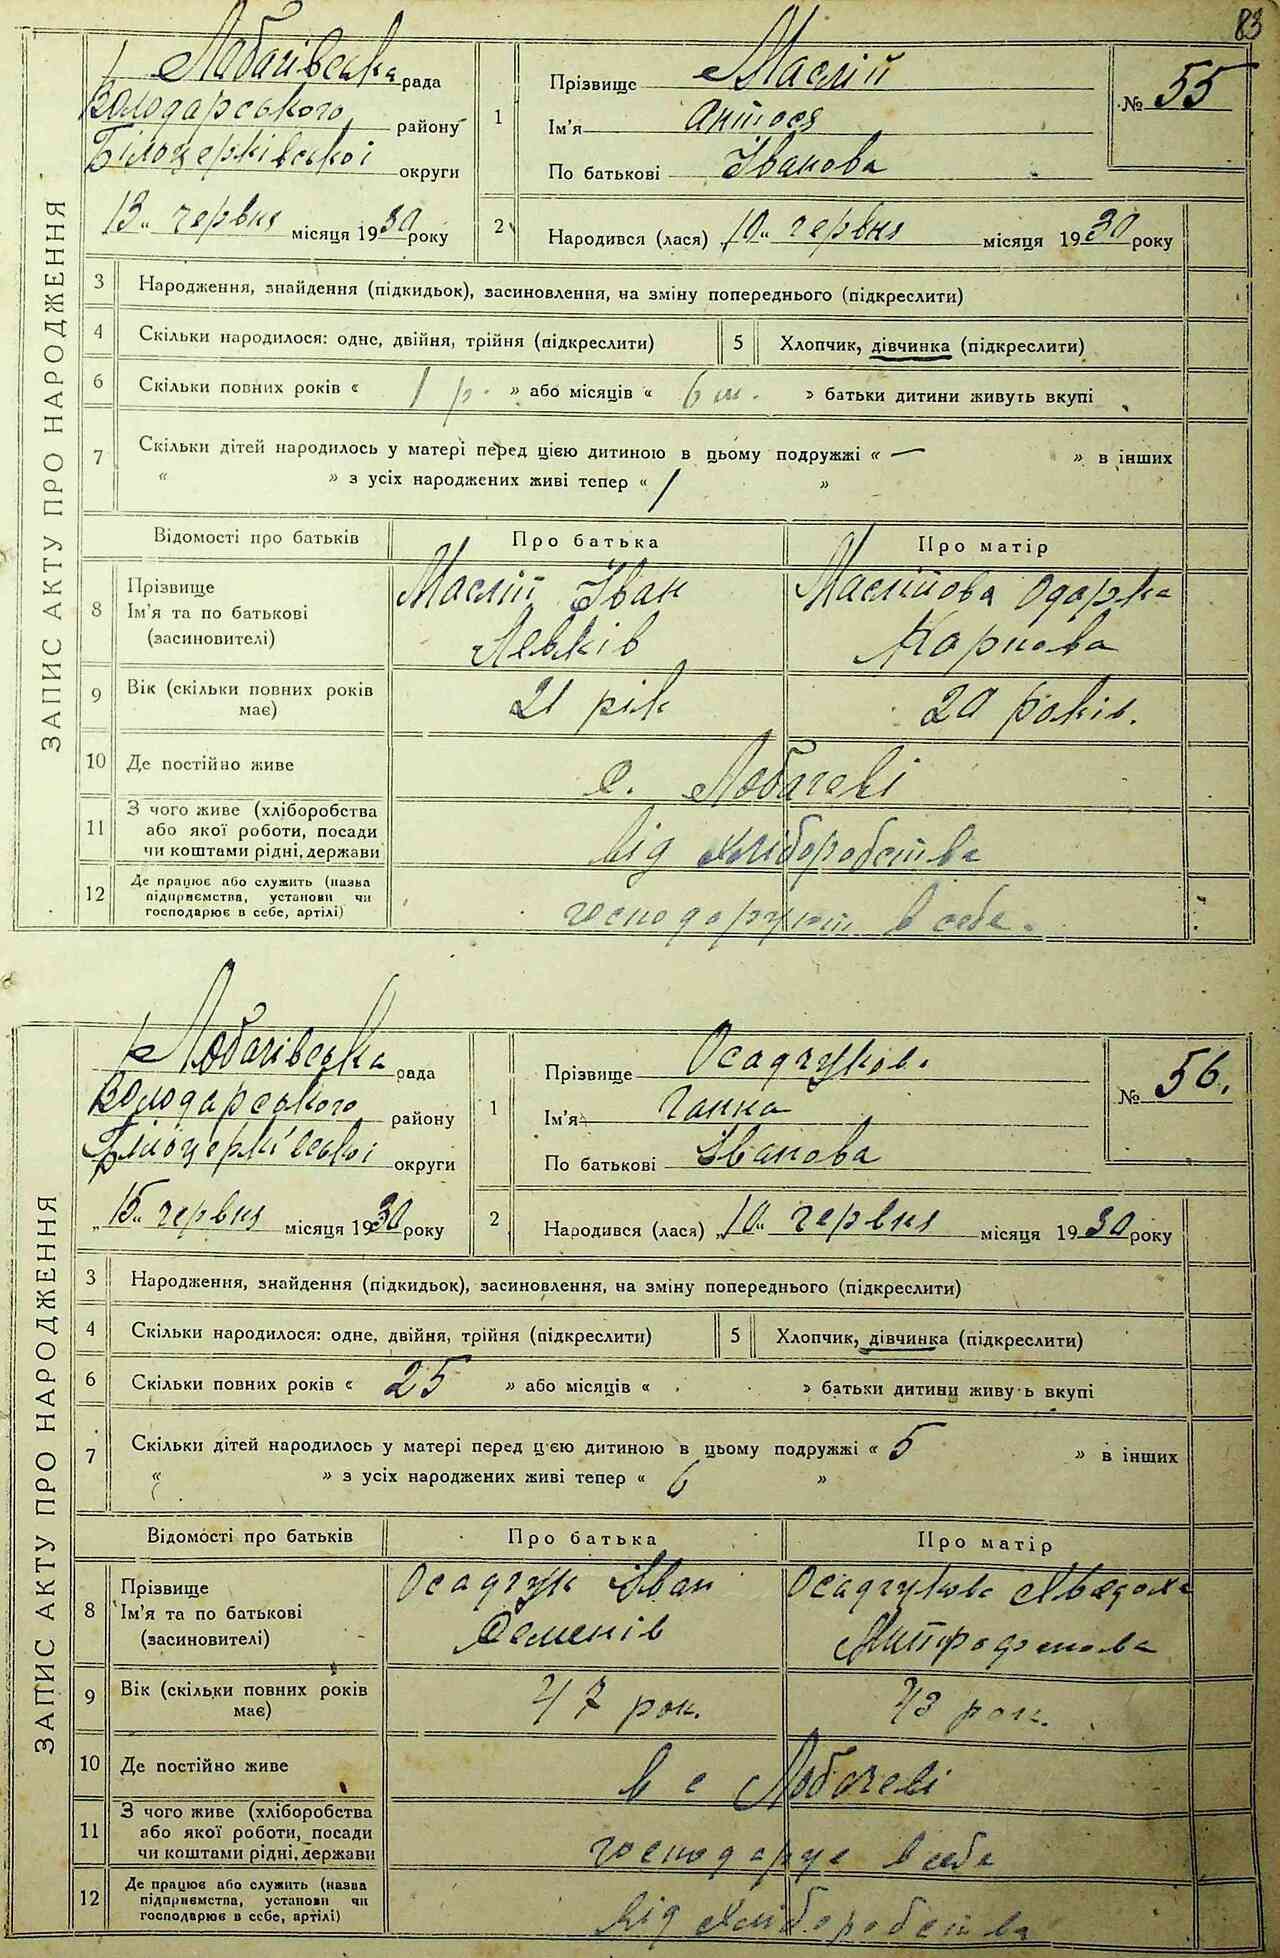 83
ЗАПИС АКТУ ПРО НАРОДЖЕННЯ
Лобачівська рада
Володарського району
Білоцерківської округи
13 " червня місяця 1930 року
1 Прізвище Маслій
Ім'я Антося
По батькові Іванова
№ 55
2 Народився (лася) „10" червня місяця 1930 року
3 Народження, знайдення (підкидьок), засиновлення, на зміну попереднього (підкреслити)
4 Скільки народилося: одне, двійня, трійня (підкреслити) 5 Хлопчик, дівчинка (підкреслити)
6 Скільки повних років « 1 р. » або місяців « 6 м. » батьки дитини живуть вкупі
7 Скільки дітей народилось у матері перед цією дитиною в цьому подружжі « — » в інших
« » з усіх народжених живі тепер « 1 »
Відомості про батьків Про батька Про матір
8 Прізвище Ім'я та по батькові (засиновителі)
Маслій Іван Левків
Маслійова Одарка Карпова
9 Вік (скільки повних років має) 21 рік 20 років.
10 Де постійно живе с. Лобачеві
11 З чого живе (хліборобства або якої роботи, посади чи коштами рідні, держави від хліборобства
12 Де працює або служить (назва підприємства, установи чи господарює в себе, артілі) господарують в себе.
ЗАПИС АКТУ ПРО НАРОДЖЕННЯ
Лобачівська рада
Володарського району
Білоцерківської округи
„15" червня місяця 1930 року
1 Прізвище Осадчукова
Ім'я Ганна
По батькові Іванова
№ 56.
2 Народився (лася) „10" червня місяця 1930 року
3 Народження, знайдення (підкидьок), засиновлення, на зміну попереднього (підкреслити)
4 Скільки народилося: одне, двійня, трійня (підкреслити) 5 Хлопчик, дівчинка (підкреслити)
6 Скільки повних років « 25 » або місяців « » батьки дитини живу ь вкупі
7 Скільки дітей народилось у матері перед цією дитиною в цьому подружжі « 5 » в інших
« » з усіх народжених живі тепер « 6 »
Відомості про батьків Про батька Про матір
8 Прізвище Ім'я та по батькові (засиновителі)
Осадчук Іван Семенів
Осадчукова Явдоха Митрофанова
9 Вік (скільки повних років має) 47 рок. 43 рок.
10 Де постійно живе в с Лобачеві
11 З чого живе (хліборобства або якої роботи, посади чи коштами рідні, держави господарує в себе
12 Де працює або служить (назва підприємства, установи чи господарює в себе, артілі) від хліборобства